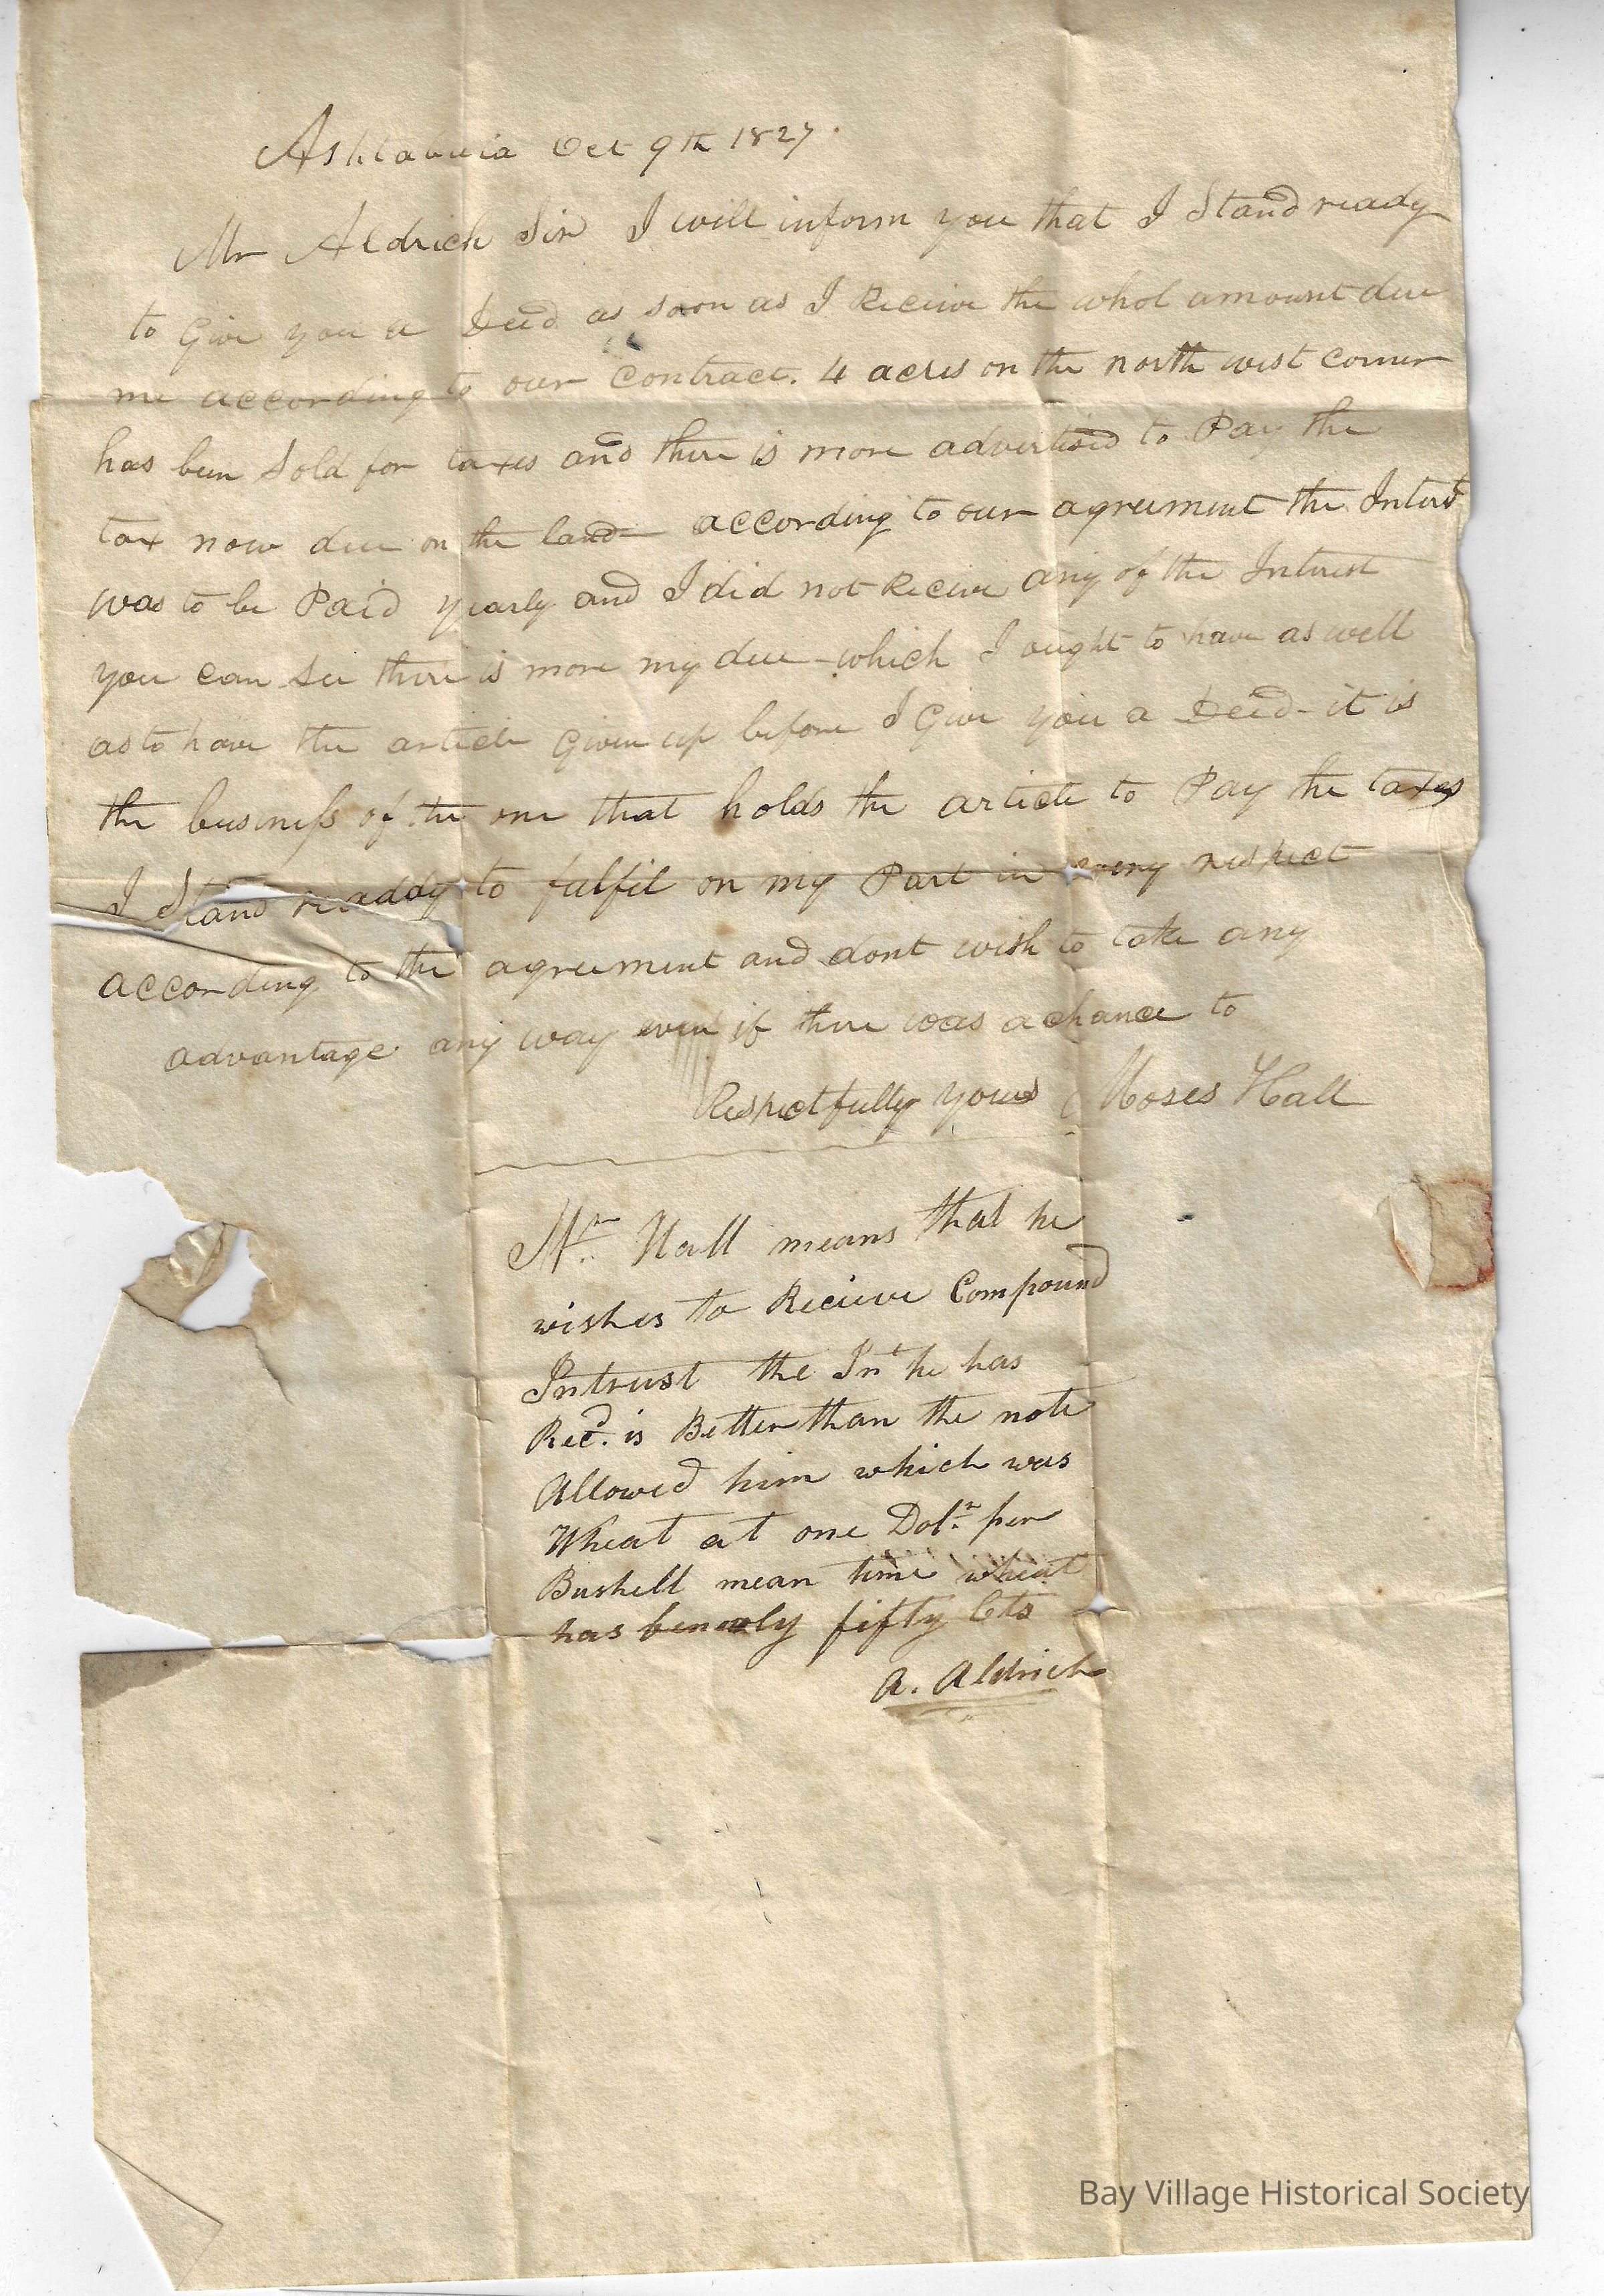 Ashtabula Oct 9th 1827.
Mr Aldrich Sir I will inform you that I Stand ready
to Give you a Deed as soon as I Receive the whol amount due
me according to our Contract. 4 acres on the north west corner
has been Sold for taxes and there is more advertised to Pay the
tax now due on the land according to our agreement the Interst
was to be Paid yearly and I did not Receive any of the Interest
you can See there is more my due which I ought to have as well
as to have the article Given up before I Give you a Deed - it is
the business of the one that holds the article to Pay the taxes
I Stand readdy to fulfil on my Part in every respect
according to the agreement and dont wish to take any
advantage any way even if there was a chance to
Respectfully yours Moses Hall
Mr. Hall means that he
wishes to Recieve Compound
Intrust the Int he has
Recd. is Better than the note
Allowed him which was
Wheat at one Dolr. per
Bushell mean time wheat
has ben only fifty Cts
A. Aldrich
Bay Village Historical Society